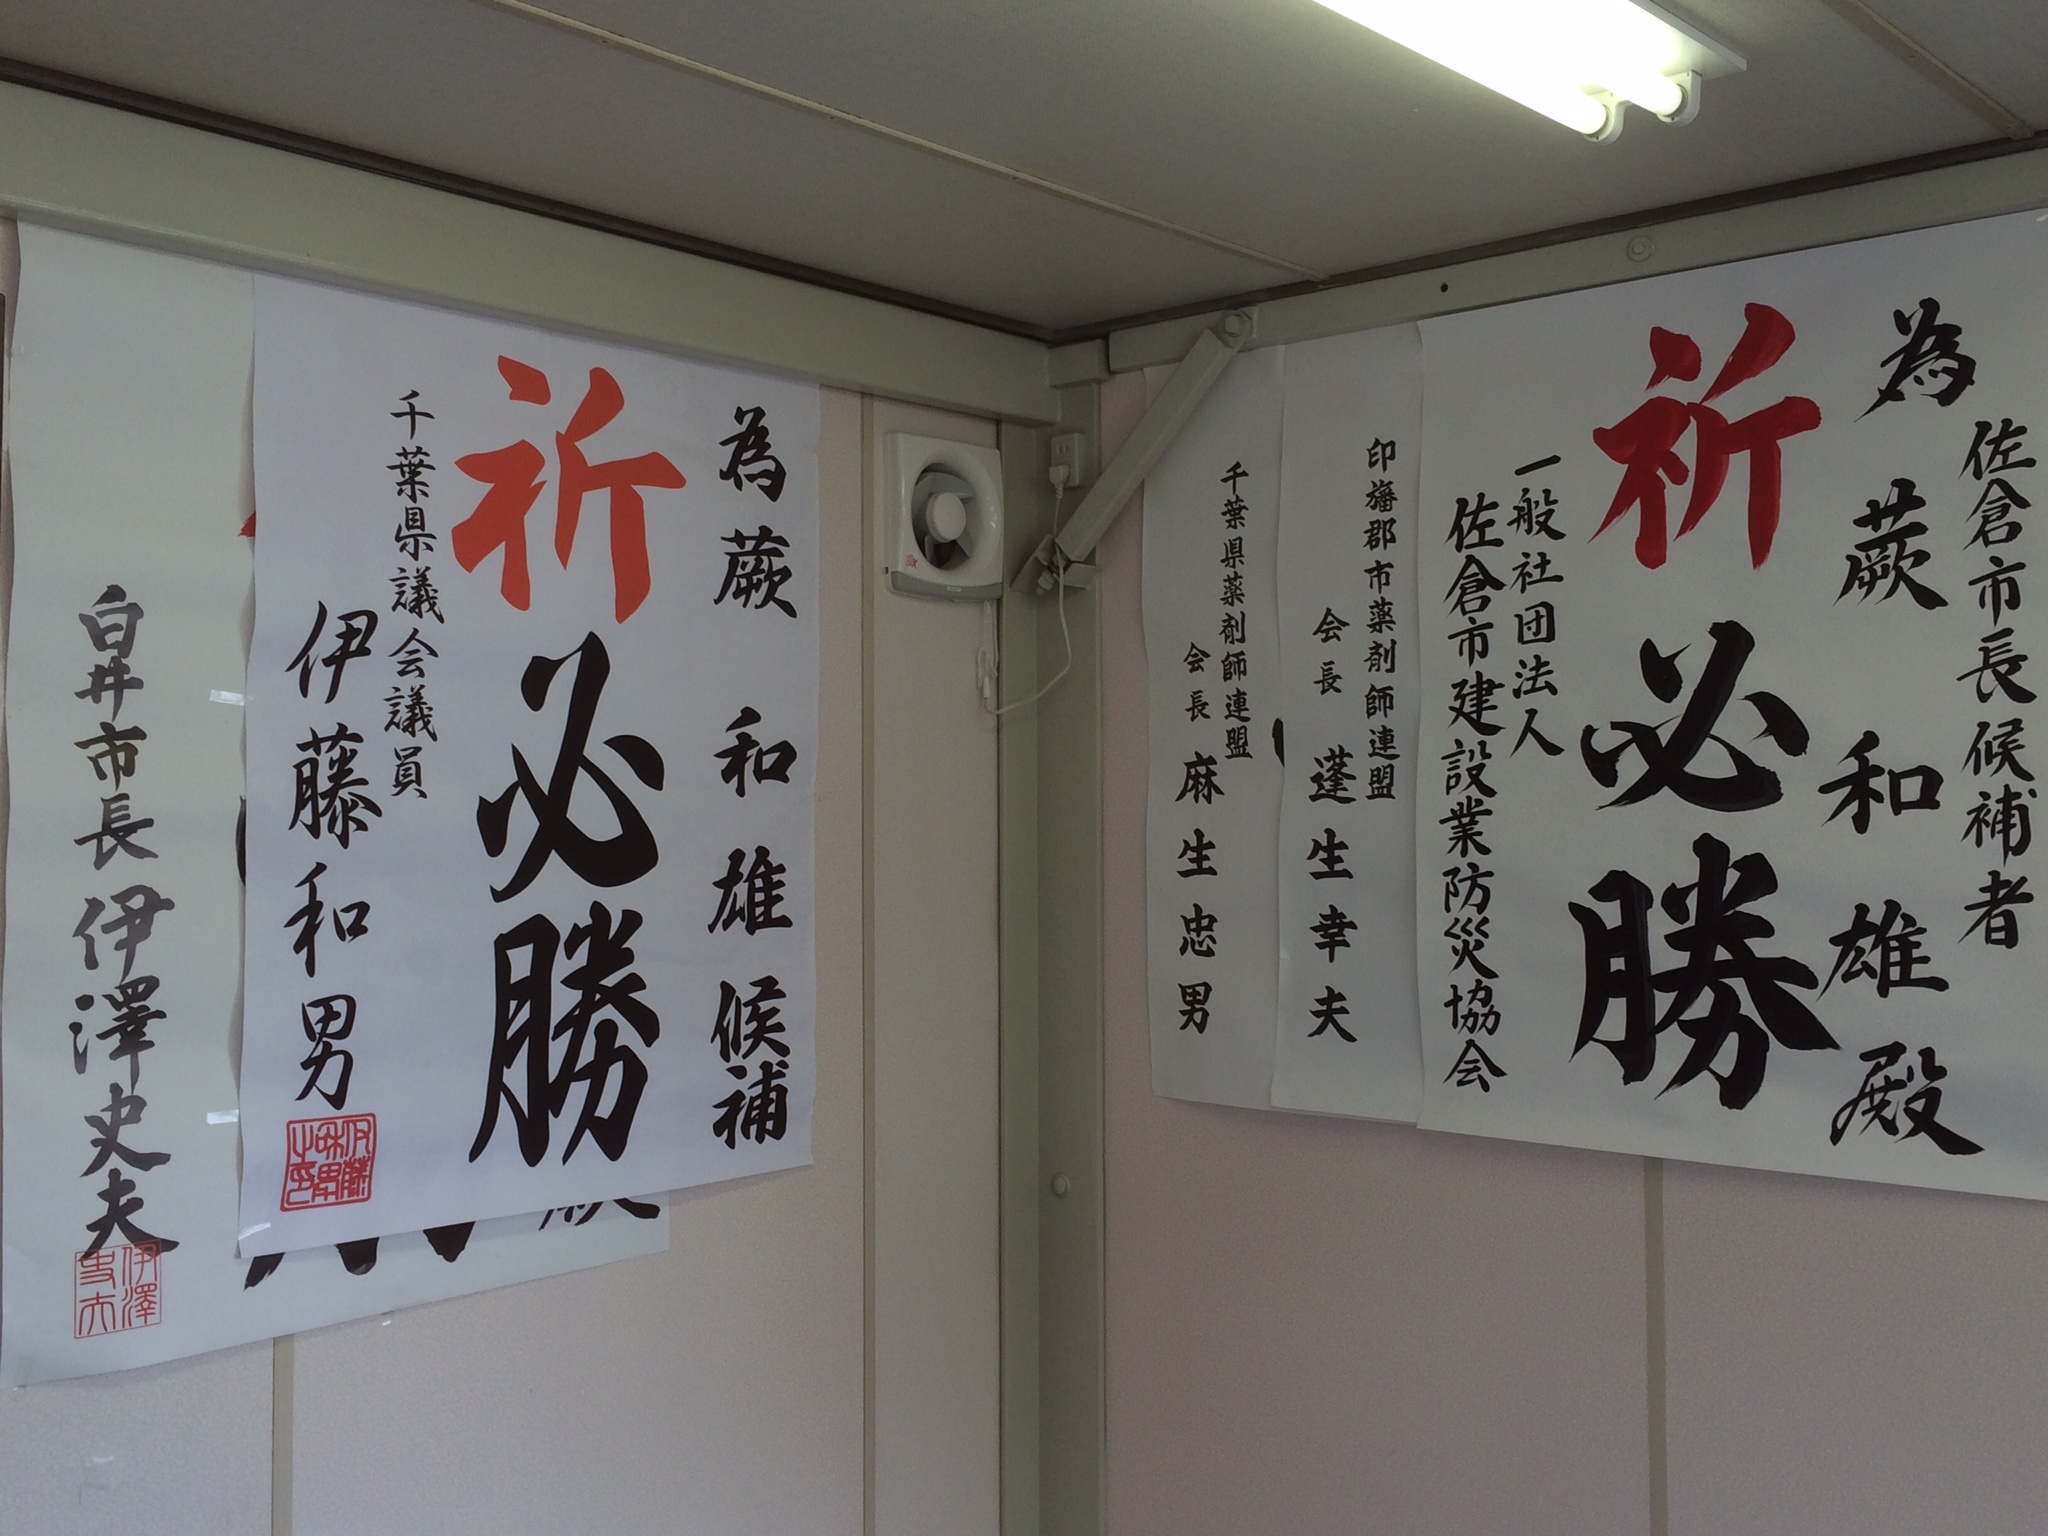 為 佐倉市長候補者
蕨 和雄殿
祈必勝
一般社団法人
佐倉市建設業防災協会
印旛郡市薬剤師連盟
会長 蓬生幸夫
千葉県薬剤師連盟
会長 麻生忠男
為 蕨 和雄候補
祈必勝
千葉県議会議員
伊藤和男
伊藤和男之印
白井市長 伊澤史夫
伊澤史夫